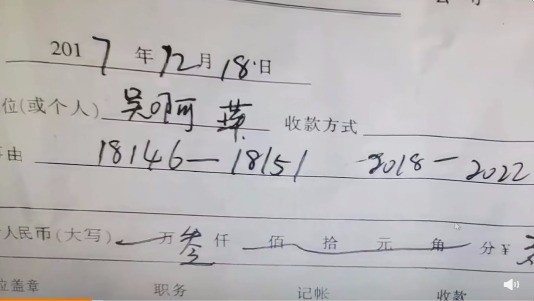 2017年12月18日
位(或个人) 吴阿 收款方式
由 18146—18151 2018—2022
人民币(大写) 万叁仟 佰 拾 元 角 分¥
位盖章 职务 记帐 收款